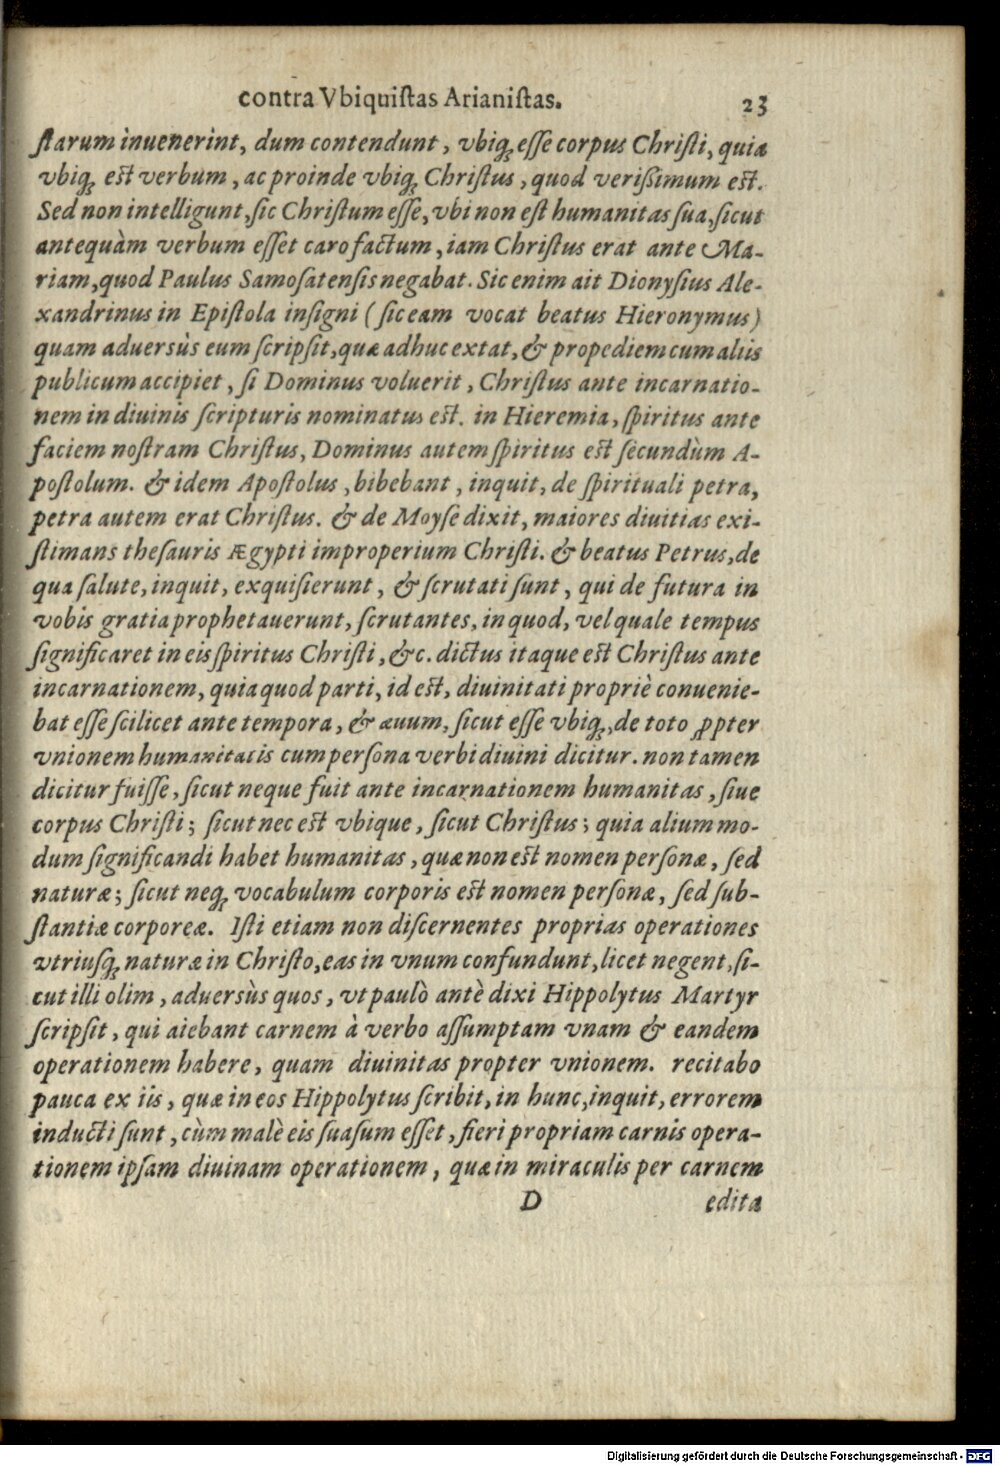 contra Vbiquiſtas Arianiſtas. 23
ſtarum inuenerint, dum contendunt, vbiq; eſſe corpus Chriſti, quia
vbiq; eſt verbum, ac proinde vbiq; Chriſtus, quod verißimum eſt.
Sed non intelligunt, ſic Chriſtum eſſe, vbi non eſt humanitas ſua, ſicut
antequàm verbum eſſet caro factum, iam Chriſtus erat ante Ma-
riam, quod Paulus Samoſatenſis negabat. Sic enim ait Dionyſius Ale-
xandrinus in Epiſtola inſigni (ſic eam vocat beatus Hieronymus)
quam aduersùs eum ſcripſit, quæ adhuc extat, & propediem cum aliis
publicum accipiet, ſi Dominus voluerit, Chriſtus ante incarnatio-
nem in diuinis ſcripturis nominatus eſt. in Hieremia, ſpiritus ante
faciem noſtram Chriſtus, Dominus autem ſpiritus eſt ſecundùm A-
poſtolum. & idem Apoſtolus, bibebant, inquit, de ſpirituali petra,
petra autem erat Chriſtus. & de Moyſe dixit, maiores diuitias exi-
ſtimans theſauris Ægypti improperium Chriſti. & beatus Petrus, de
qua ſalute, inquit, exquiſierunt, & ſcrutati ſunt, qui de futura in
vobis gratia prophetauerunt, ſcrutantes, in quod, vel quale tempus
ſignificaret in eis ſpiritus Chriſti, &c. dictus itaque eſt Chriſtus ante
incarnationem, quia quod parti, id eſt, diuinitati propriè conuenie-
bat eſſe ſcilicet ante tempora, & æuum, ſicut eſſe vbiq;, de toto ꝓpter
vnionem humanitatis cum perſona verbi diuini dicitur. non tamen
dicitur fuiſſe, ſicut neque fuit ante incarnationem humanitas, ſiue
corpus Chriſti; ſicut nec eſt vbique, ſicut Chriſtus; quia alium mo-
dum ſignificandi habet humanitas, quæ non eſt nomen perſonæ, ſed
naturæ; ſicut neq; vocabulum corporis eſt nomen perſonæ, ſed ſub-
ſtantiæ corporeæ. Iſti etiam non diſcernentes proprias operationes
vtriuſq; naturæ in Chriſto, eas in vnum confundunt, licet negent, ſi-
cut illi olim, aduersùs quos, vt paulò antè dixi Hippolytus Martyr
ſcripſit, qui aiebant carnem à verbo aſſumptam vnam & eandem
operationem habere, quam diuinitas propter vnionem. recitabo
pauca ex iis, quæ in eos Hippolytus ſcribit, in hunc, inquit, errorem
inducti ſunt, cùm malè eis ſuaſum eſſet, fieri propriam carnis opera-
tionem ipſam diuinam operationem, quæ in miraculis per carnem
D edita
Digitalisierung gefördert durch die Deutsche Forschungsgemeinschaft - DFG